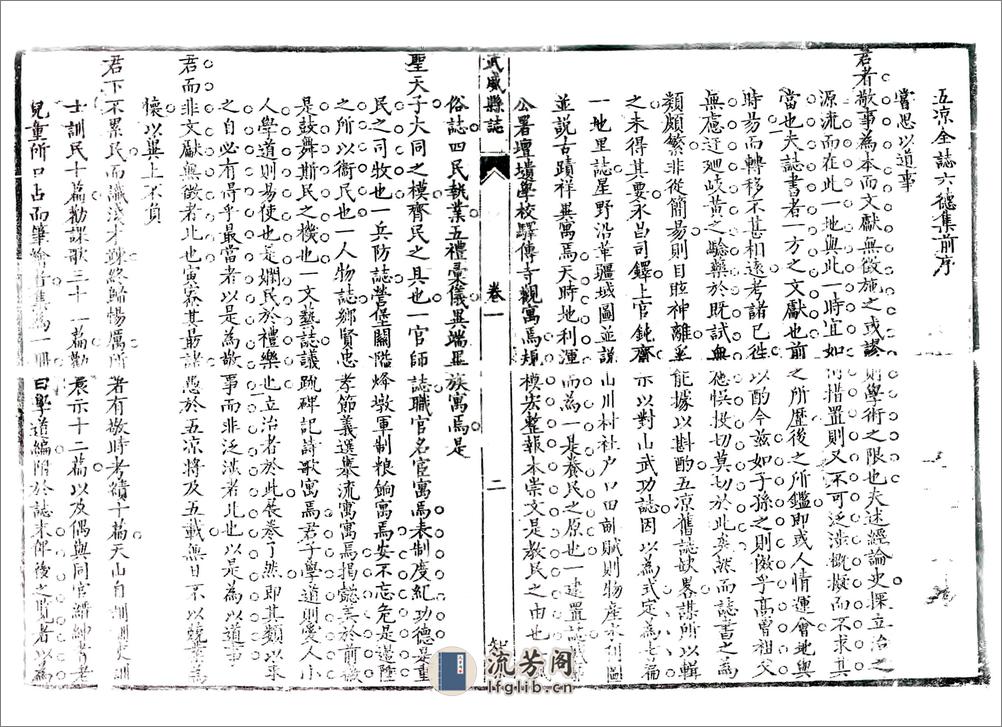 五涼全誌六德集前序
嘗思以道事
君者敬事為本而文獻無徵施之或謬則學術之限也夫述經論史探立治之
源流而在此一地與此一時宜如何措置則又不可泛涉概擬而不求其
當也夫誌書者一方之文獻也前之所歷後之所鑑即或人情運會地與
時易而轉移不甚相遠考諸已徃以酌今茲如子孫之則傚乎高曾祖父
無應迂廻岐黃之驗藥於既試無他悞投切莫切於此矣然而誌書之為
類頗繁非從簡易則目眩神離莫能據以斟酌五涼舊誌缺畧謀所以輯
之未得其要永昌司鐸上官鈍齋示以對山武功誌因以為式定為七篇
一地里誌星野沿革疆域圖並說山川村社户口田賦則物產水利圖
並説古蹟祥異寓焉天時地利運而為一是養民之原也一建置誌
公署壇壝學校驛傳寺觀寓焉規模宏整報本崇文是教民之由也
武威縣誌
卷一
二
俗誌四民執業五禮㐮儀異端里族寓焉是
聖天子大同之模齊民之具也一官師誌職官名宦寓焉表制度紀功德是重
民之司牧也一兵防誌營堡關隘烽墩軍制粮餉寓焉安不忘危是邊陲
之所以衛民也一人物誌鄉賢忠孝節義選舉流寓寓焉揭懿美於前徽
是鼓舞斯民之機也一文藝誌議疏碑記詩歌寓焉君子學道則愛人小
人學道則易使也是嫻民於禮樂也立治者於此展卷了然即其類以求
之自必有得乎最當者以是為敬事而非泛涉者比也以是為以道事
君而非文獻無徵者比也寅寀其勗諸愚於五涼將及五載無日不以兢業為
懷以冀上不負
君下不累民而識淺才踈終歸惕厲所著有敬時考績十篇天山自訓訓吏訓
士訓民十篇勸課歌三十一篇勸農示十二篇以及偶與同官縉紳耆老
兒童所口占而筆諭者集為一冊曰學道編附於誌末俾後之覽者以為
流芳阁
lfglib.cn